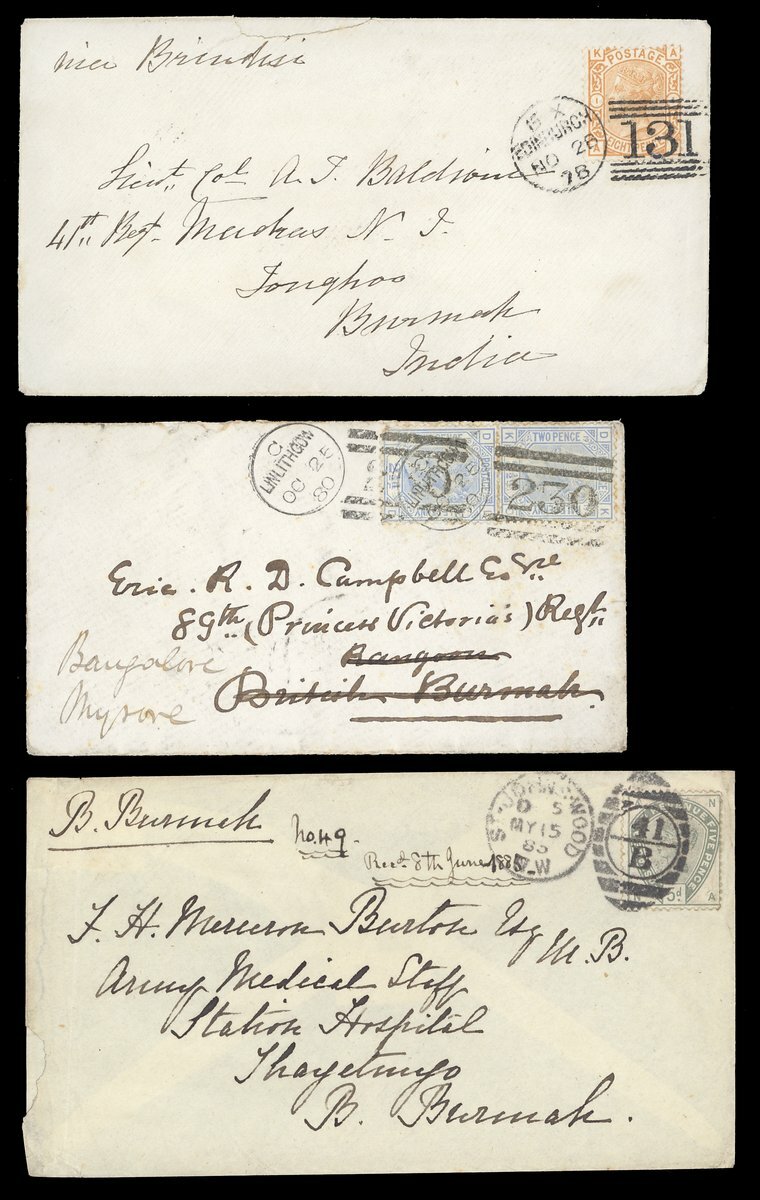 via Brindisi
K A
POSTAGE
EDINBURGH
NO 28
78
131
Lieut. Col. A. T. Baldwin
41st Regt. Madras N. I.
Tonghoo
Burmah
India
C
LINLITHGOW
OC 25
80
D D
TWO PENCE
K K
230
Eric. R. D. Campbell Esqre
89th (Princess Victoria's) Regt.
Rangoon
British Burmah.
Bangalore
Mysore
B. Burmah
No. 49
Recd. 8th June 1885
ST JOHN'S WOOD
D S
MY 15
85
N.W
41
B
N
NUE FIVE PENCE
5d
A
F. H. Burton Esq M.B.
Army Medical Staff
Station Hospital
Thayetmyo
B. Burmah.